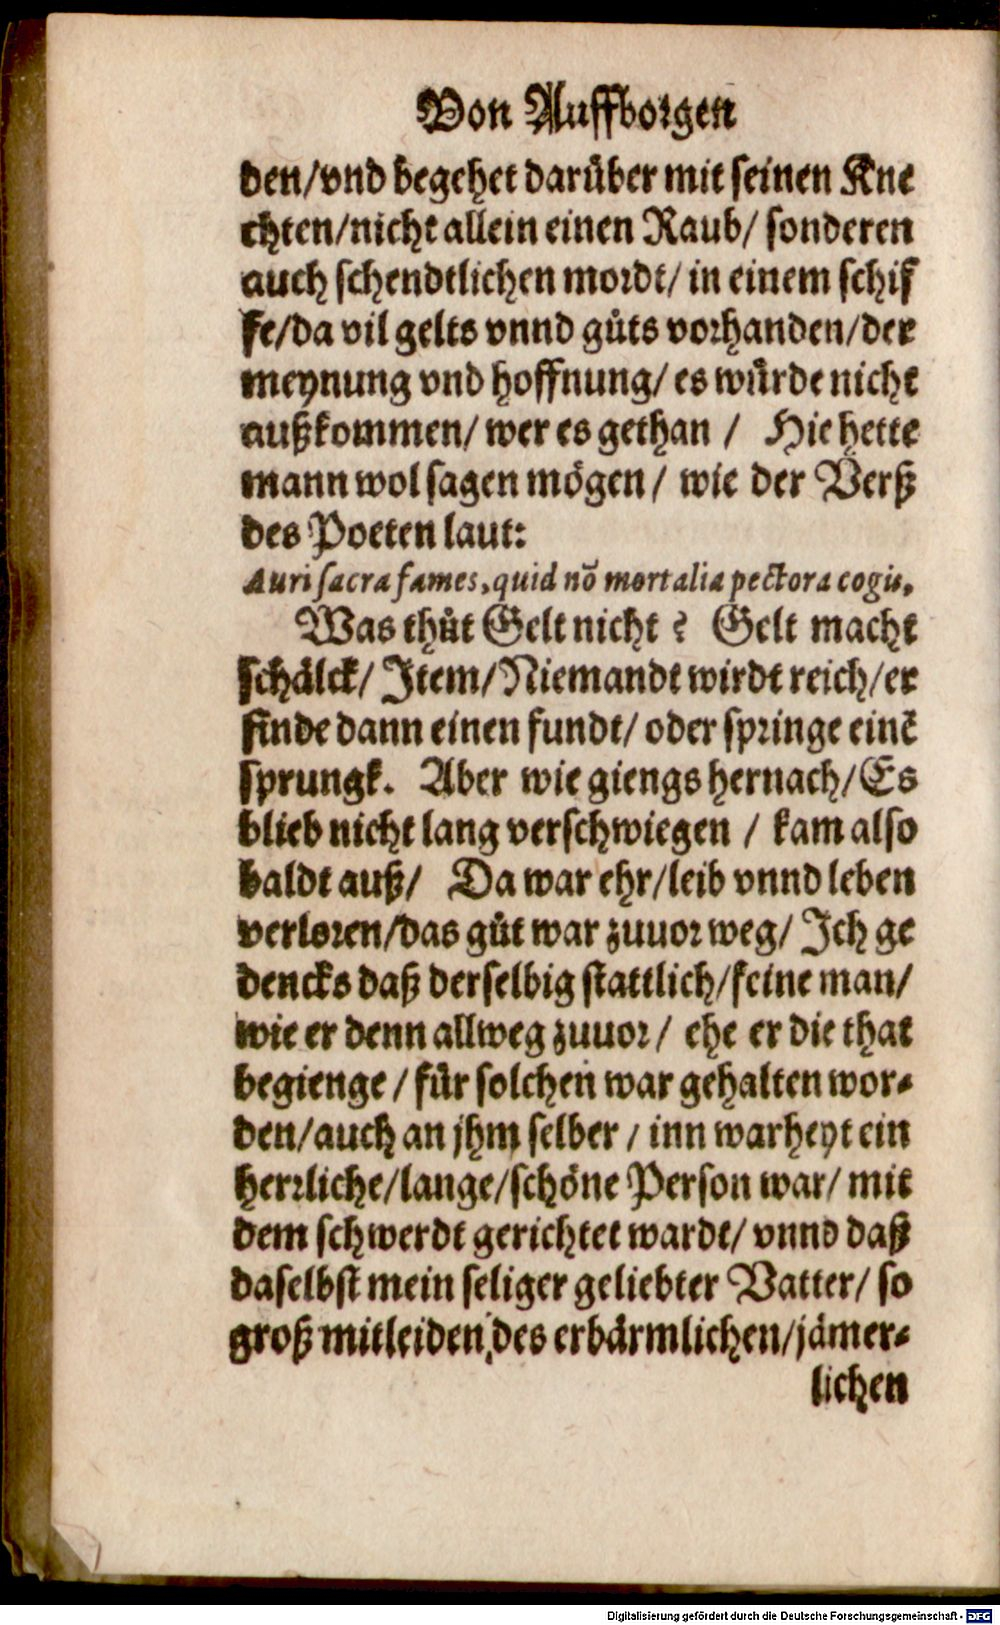 Von Auffborgen
den/vnd begehet darüber mit seinen Kne
chten/nicht allein einen Raub/ sonderen
auch schendtlichen mordt/ in einem schif
fe/da vil gelts vnnd gůts vorhanden/der
meynung vnd hoffnung/ es würde nicht
außkommen/ wer es gethan / Hie hette
mann wol sagen mögen/ wie der Verß
des Poeten laut:
Auri sacra fames, quid nō mortalia pectora cogis.
Was thůt Gelt nicht? Gelt macht
schälck/ Item/Niemandt wirdt reich/er
finde dann einen fundt/ oder springe einē
sprungk. Aber wie giengs hernach/Es
blieb nicht lang verschwiegen / kam also
baldt auß/ Da war ehr/leib vnnd leben
verloren/das gůt war zuuor weg/ Ich ge
dencks daß derselbig stattlich/feine man/
wie er denn allweg zuuor/ ehe er die that
begienge / für solchen war gehalten wor-
den/auch an jhm selber / inn warheyt ein
herrliche/lange/schöne Person war/ mit
dem schwerdt gerichtet wardt/ vnnd daß
daselbst mein seliger geliebter Vatter/ so
groß mitleiden,des erbärmlichen/jämer-
lichen
Digitalisierung gefördert durch die Deutsche Forschungsgemeinschaft - DFG